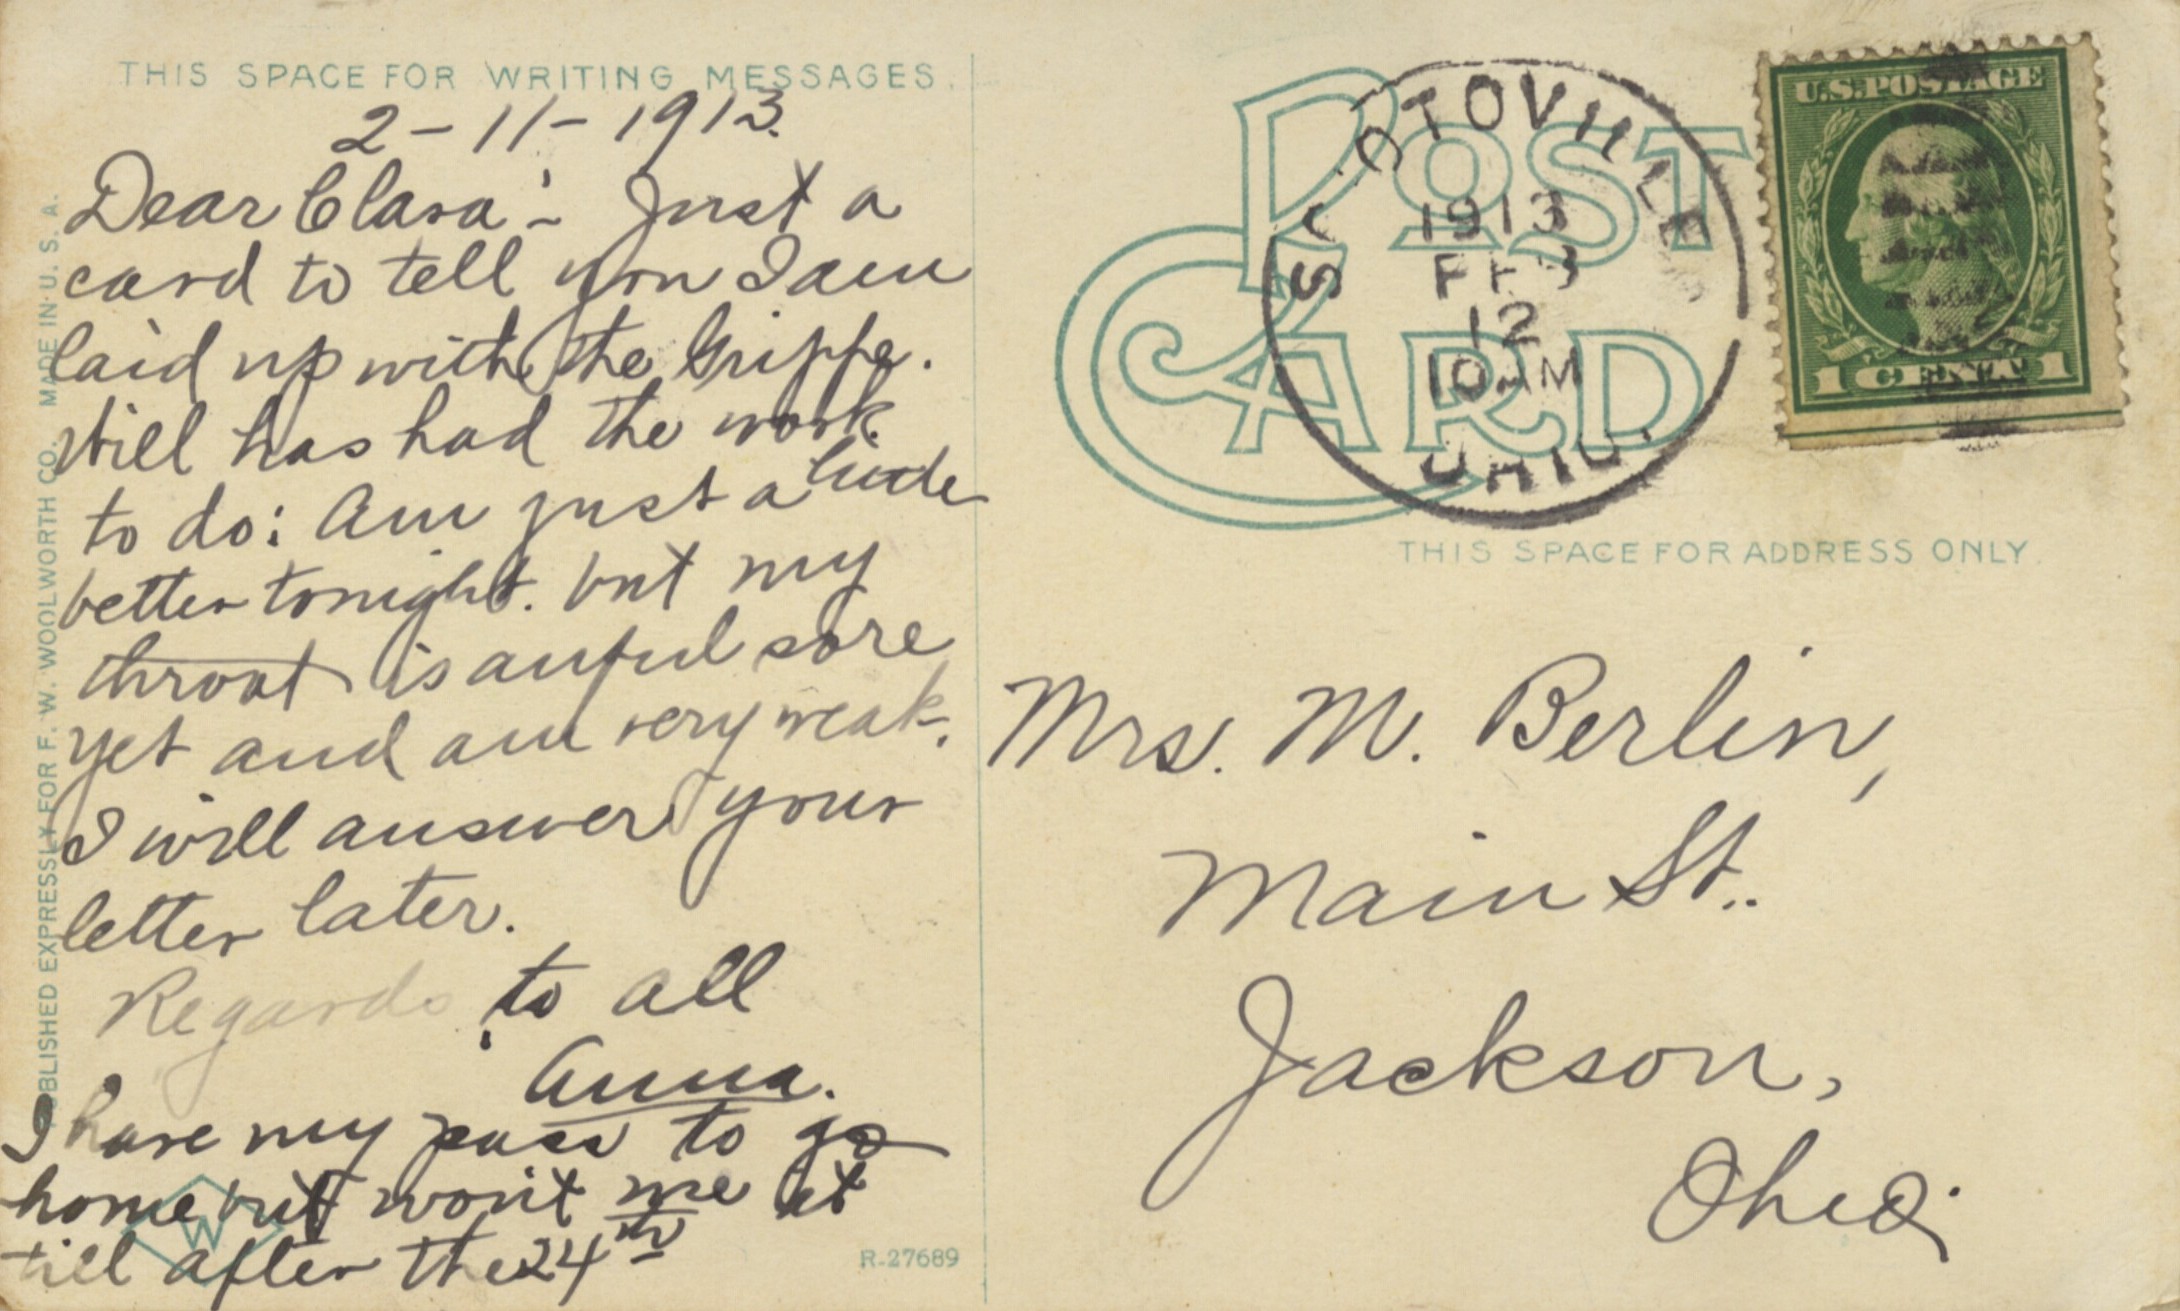 THIS SPACE FOR WRITING MESSAGES.
2-11-1913.
Dear Clara:- Just a
card to tell you I am
laid up with the Grippe.
Will has had the work
to do: Am just a little
better tonight. but my
throat is awful sore
yet and am very weak.
I will answer your
letter later.
Regards to all
Anna.
I have my pass to go
home but won't use it
till after the 24th
PUBLISHED EXPRESSLY FOR F. W. WOOLWORTH CO. MADE IN U. S. A.
W
R-27689
POST
CARD
SCIOTOVILLE
1913
FEB
12
10 AM
OHIO.
U.S. POSTAGE
1 CENT 1
THIS SPACE FOR ADDRESS ONLY.
Mrs. M. Berlin,
Main St.
Jackson,
Ohio.